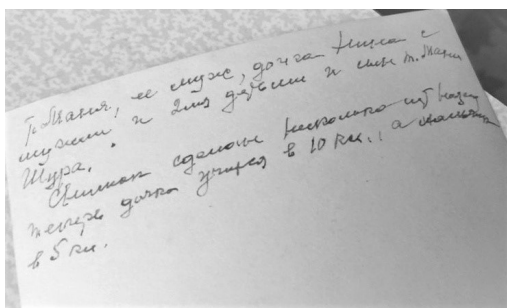 Т. Маня, её муж, дочка Нина с
мужем и 2мя детьми и сын т. Мани
Шура.
Снимок сделан несколько лет назад
теперь дочка учится в 10 кл., а мальчик
в 5 кл.